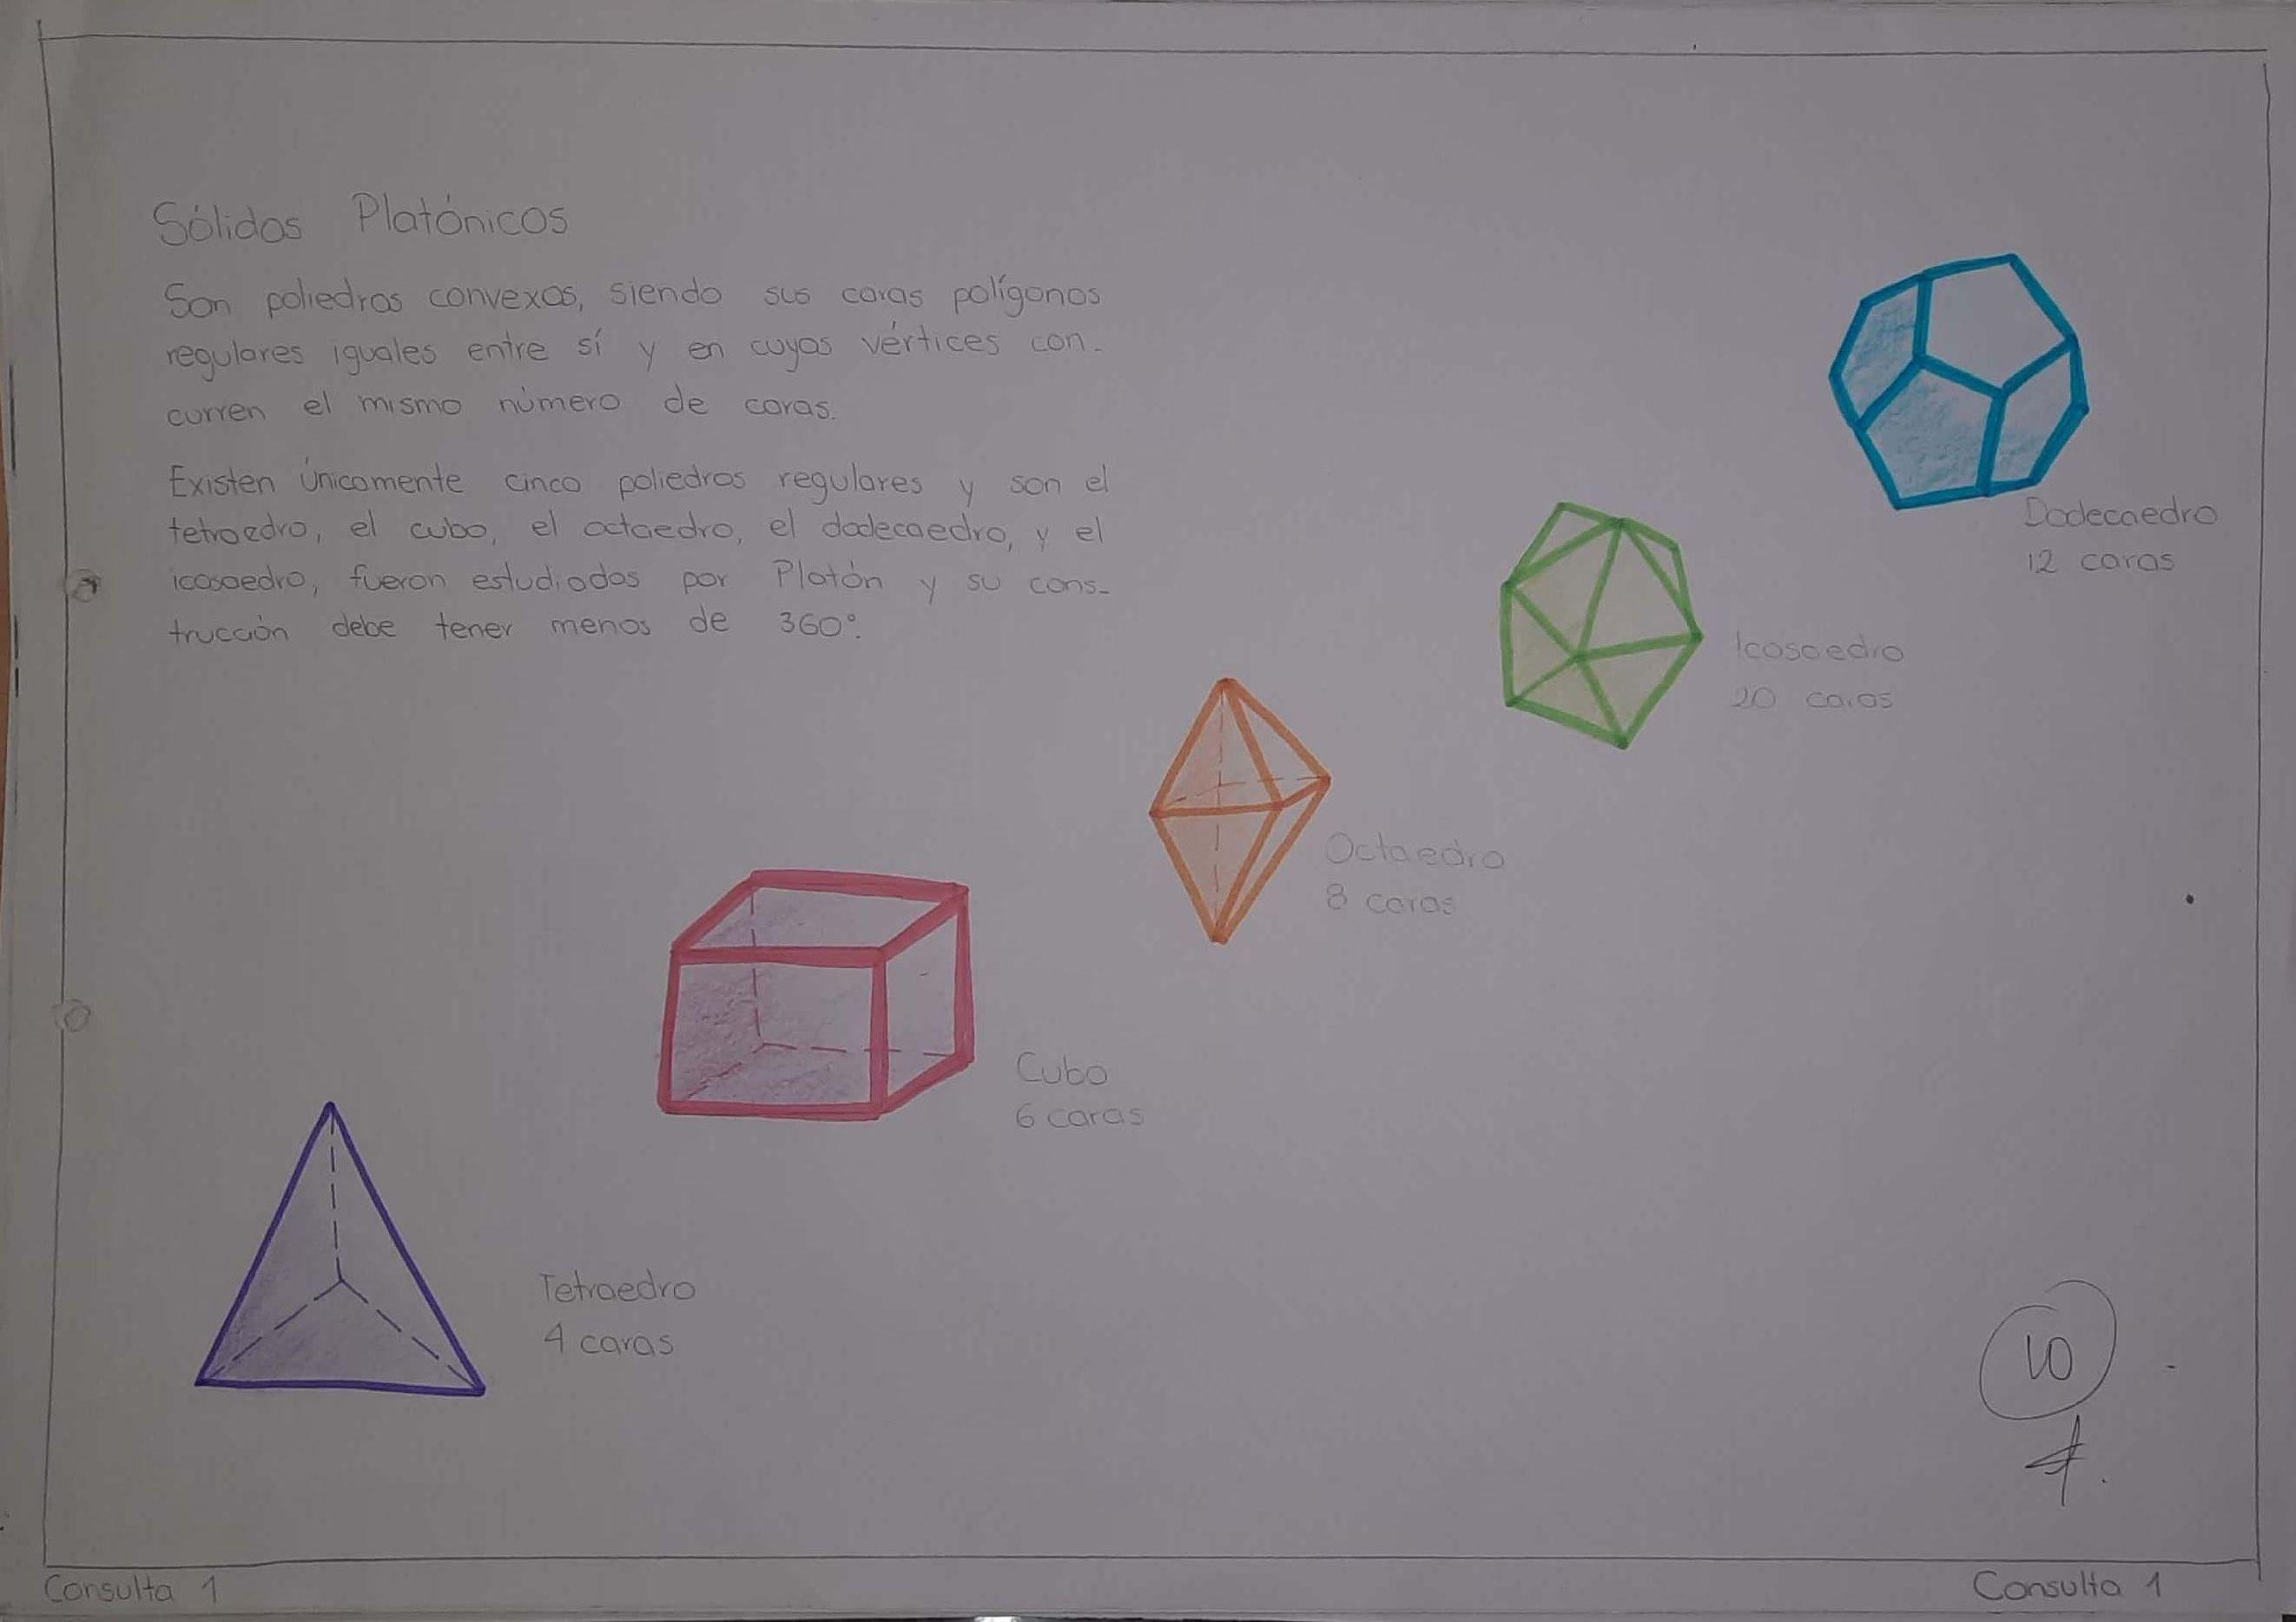 Sólidos Platónicos
Son poliedros convexos, siendo sus caras polígonos
regulares iguales entre sí y en cuyos vértices con-
curren el mismo número de caras.
Existen únicamente cinco poliedros regulares y son el
tetraedro, el cubo, el octaedro, el dodecaedro, y el
icosaedro, fueron estudiados por Platón y su cons-
trucción debe tener menos de 360°.
Dodecaedro
12 caras
Icosaedro
20 caras
Octaedro
8 caras
Cubo
6 caras
Tetraedro
4 caras
10
Consulta 1
Consulta 1